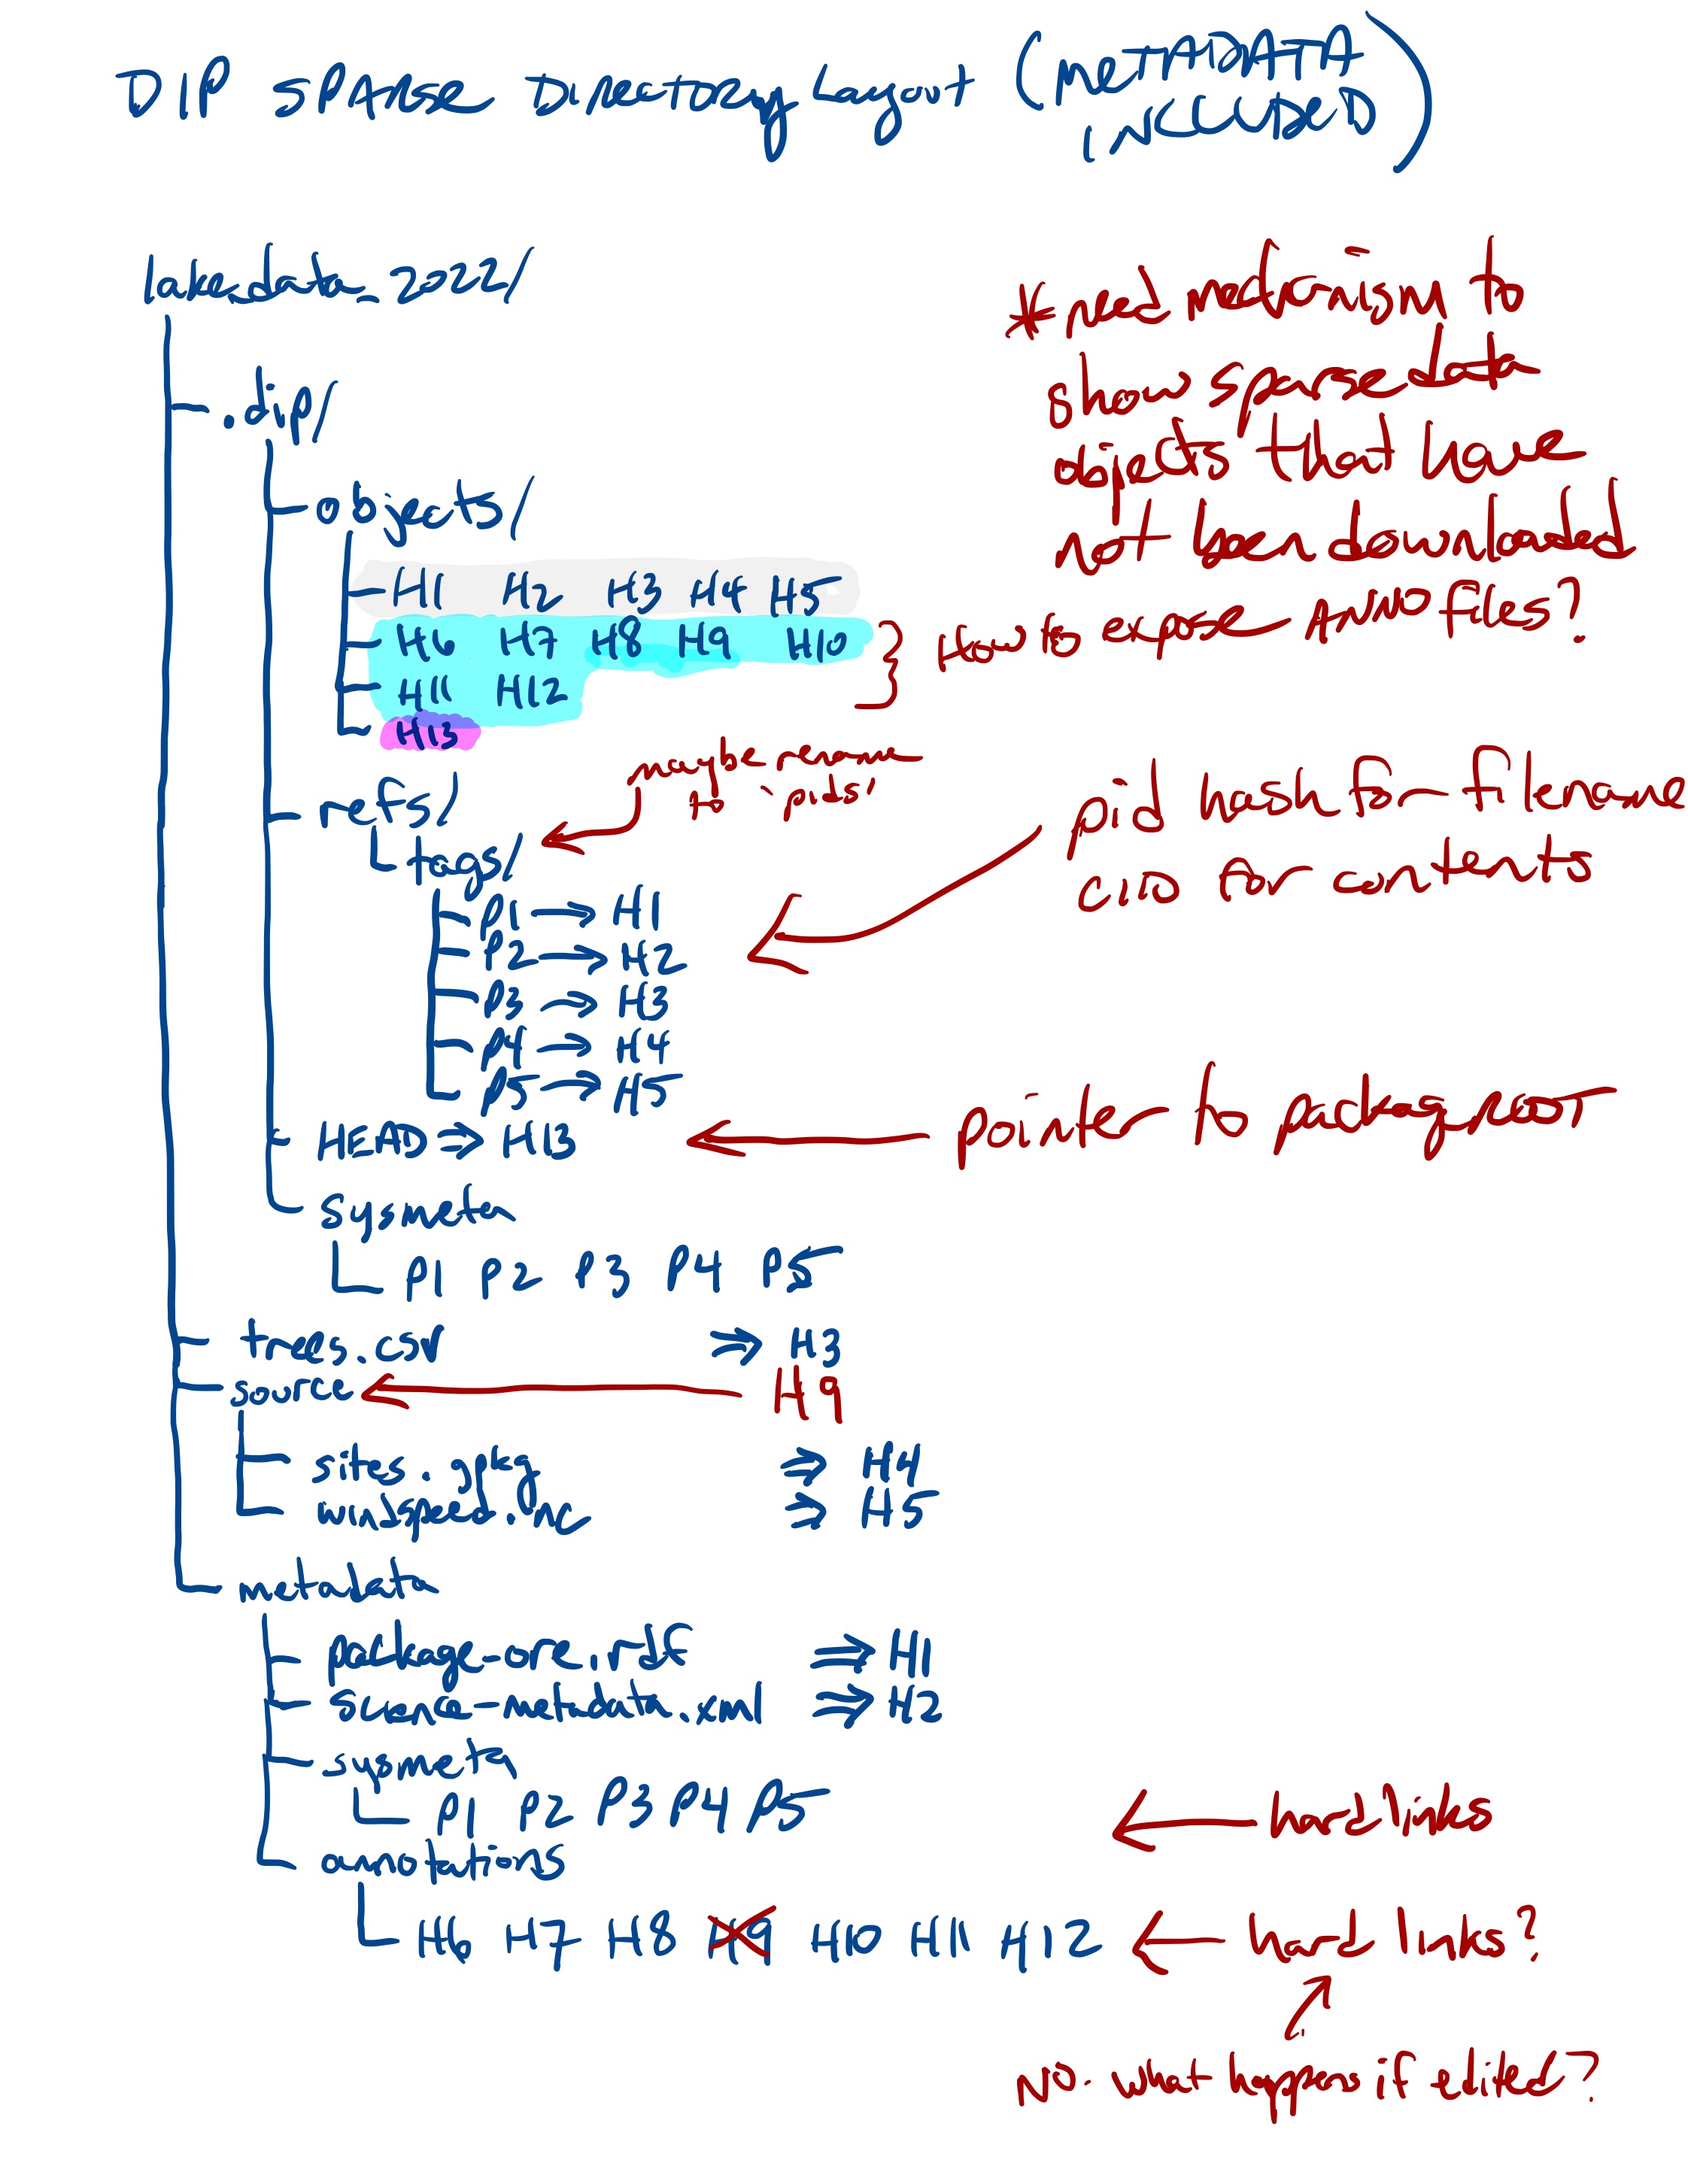 DIP SPARSE DIRECTORY LAYOUT (METADATA
INCLUDED)
lake_data_2022/
* need mechanism to
show sparse data
objects that have
not been downloaded
.dip/
objects/
H1 H2 H3 H4 H5
H6 H7 H8 H9 H10
H11 H12
H13
} How to expose ANNO files?
refs/
maybe rename
to 'pids'
tags/
pid hash for filename
CID for contents
P1 → H1
P2 → H2
P3 → H3
P4 → H4
P5 → H5
HEAD ⇒ H13
← pointer to package root
sysmeta
P1 P2 P3 P4 P5
trees.csv ⇒ H3
source ← H9
sites.gpkg ⇒ H4
windspeed.nc ⇒ H5
metadata
package-ore.rdf ⇒ H1
science-metadata.xml ⇒ H2
sysmeta
P1 P2 P3 P4 P5 ← hard links
annotations
H6 H7 H8 H9 H10 H11 H12 ← hard links?
NO. what happens if edited?